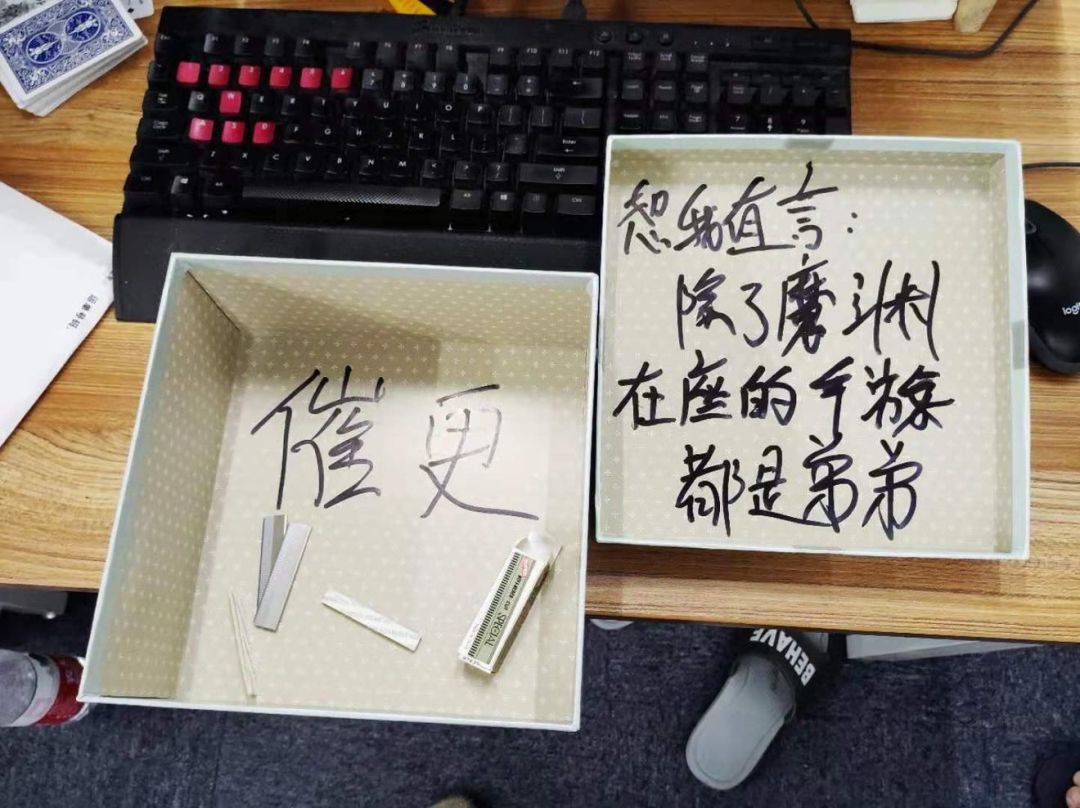 催更
SPECIAL
恕我直言:
除了魔渊
在座的手游
都是弟弟
BEHAVE
logi